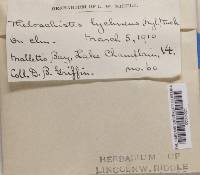 HERBARIUM OF L. W. RIDDLE.
Theloschistes lychneus, Nyl. Tuck
on elm. March 5, 1910
Malletts Bay, Lake Champlain, Vt.
Coll. D. B. Griffin. no. 60
HERBARIUM OF
LINCOLN W. RIDDLE